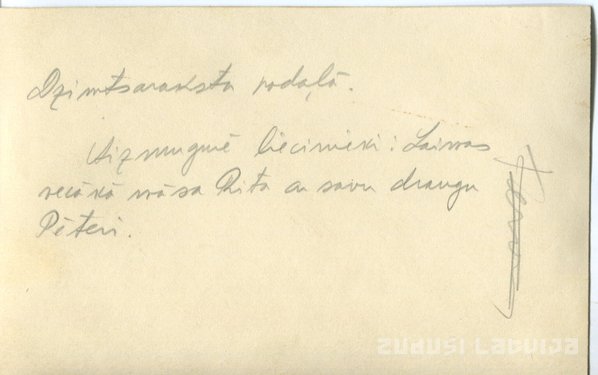 Dzimtsaraksta nodaļā.
Aizmugurē liecinieki: Laimas
vecākā māsa Rita ar savu draugu
Pēteri.
ZUDUSI LATVIJA